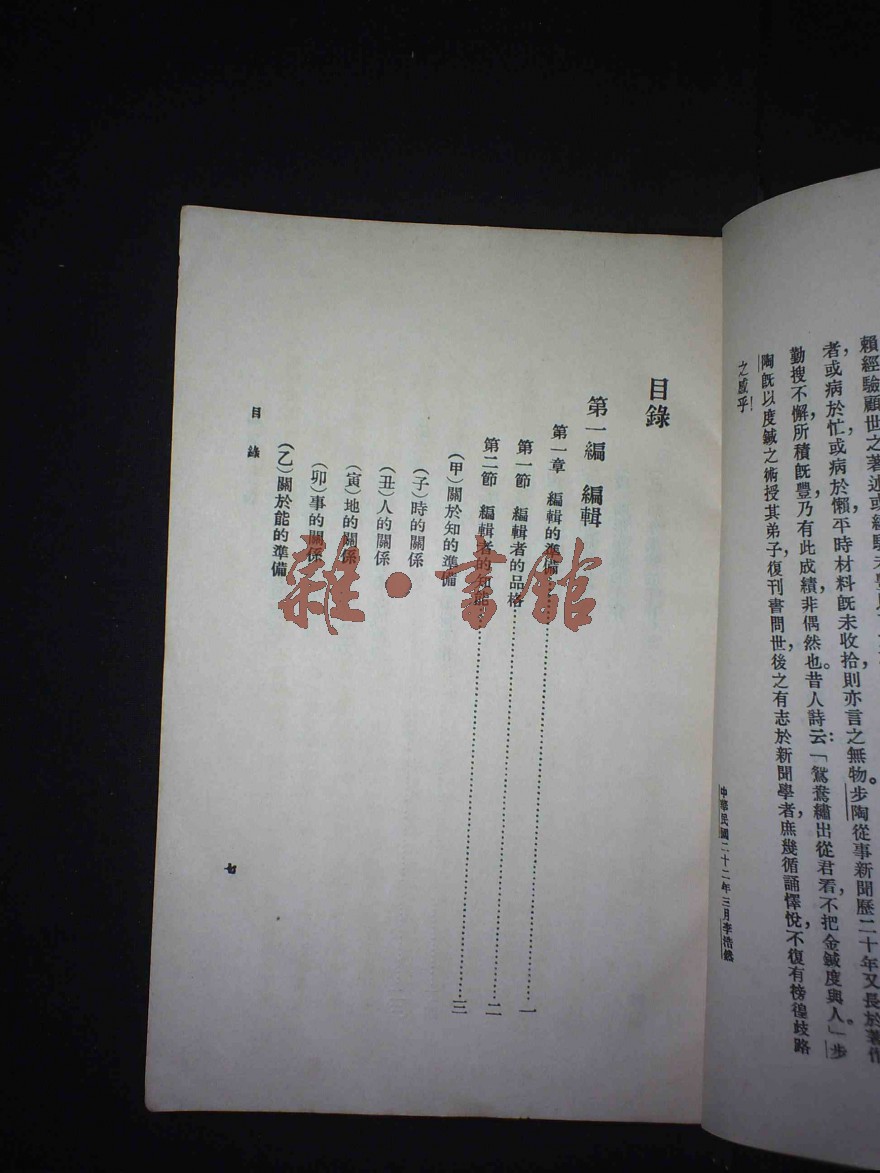 賴經驗顧世之著述或經驗
者，或病於忙或病於懶平時材料旣未收拾則亦言之無物。步陶從事新聞歷二十年又長於著作
勤搜不懈所積旣豐乃有此成績非偶然也。昔人詩云：「鴛鴦繡出從君看，不把金鍼度與人。」步
陶旣以度鍼之術授其弟子，復刊書問世，後之有志於新聞學者，庶幾循誦懌悅，不復有徬徨歧路
之感乎！
中華民國二十二年三月李浩然
目錄
第一編　編輯
第一章　編輯的準備……一
第一節　編輯者的品格……二
第二節　編輯者的知能……三
（甲）關於知的準備
（子）時的關係
（丑）人的關係
（寅）地的關係
（卯）事的關係
（乙）關於能的準備
目　錄
七
雜·書館